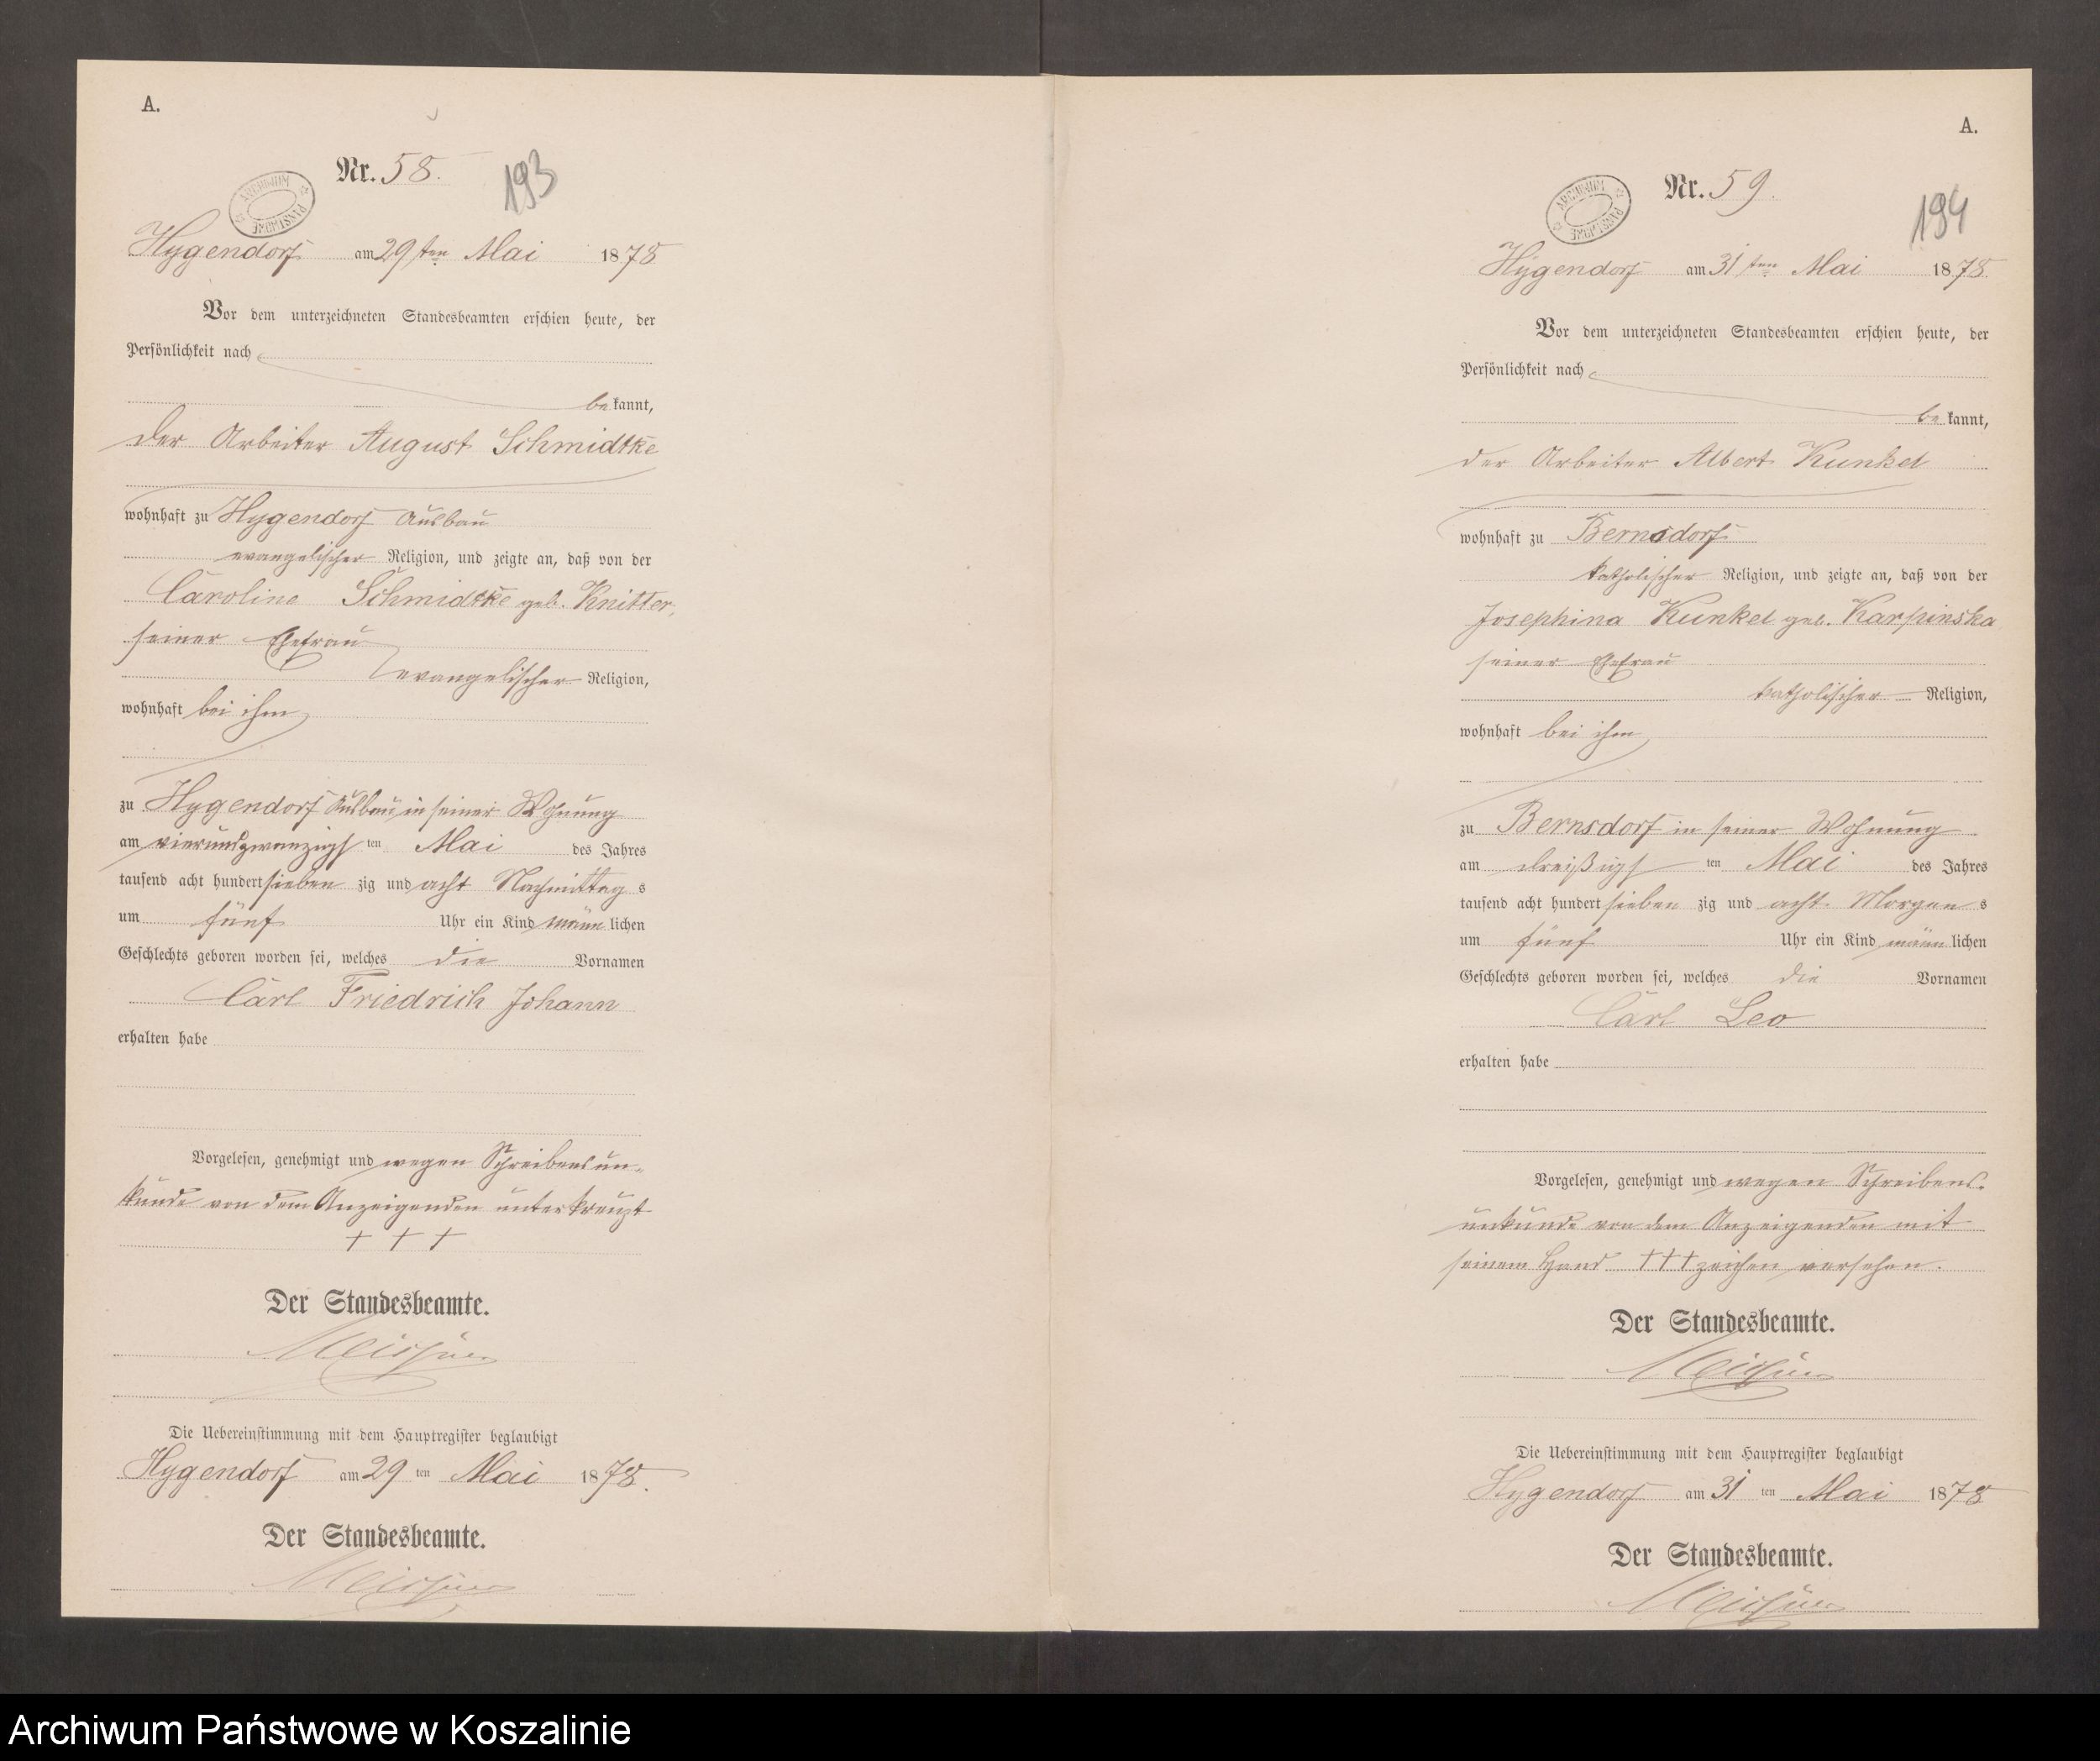 A.
Nr. 58.
193
ARCHIWUM PAŃSTWOWE
Hygendorf am 29ten Mai 1878
Vor dem unterzeichneten Standesbeamten erschien heute, der
Persönlichkeit nach
bekannt,
der Arbeiter August Schmidtke
wohnhaft zu Hygendorf Ausbau
evangelischer Religion, und zeigte an, daß von der
Caroline Schmidtke geb. Knitter,
seiner Ehefrau
evangelischer Religion,
wohnhaft bei ihm
zu Hygendorf Ausbau in seiner Wohnung
am vierundzwanzigsten Mai des Jahres
tausend acht hundert siebenzig und acht Nachmittags
um fünf Uhr ein Kind männlichen
Geschlechts geboren worden sei, welches die Vornamen
Carl Friedrich Johann
erhalten habe
Vorgelesen, genehmigt und wegen Schreibensun-
kunde von dem Anzeigenden unterkreuzt
+ + +
Der Standesbeamte.
Die Uebereinstimmung mit dem Hauptregister beglaubigt
Hygendorf am 29 ten Mai 1878.
Der Standesbeamte.
A.
Nr. 59.
194
ARCHIWUM PAŃSTWOWE
Hygendorf am 31ten Mai 1878
Vor dem unterzeichneten Standesbeamten erschien heute, der
Persönlichkeit nach
bekannt,
der Arbeiter Albert Kunkel
wohnhaft zu Bernsdorf
katholischer Religion, und zeigte an, daß von der
Josephina Kunkel geb. Karpinska
seiner Ehefrau
katholischer Religion,
wohnhaft bei ihm
zu Bernsdorf in seiner Wohnung
am dreißigsten Mai des Jahres
tausend acht hundert siebenzig und acht Morgens
um fünf Uhr ein Kind männlichen
Geschlechts geboren worden sei, welches die Vornamen
Carl Leo
erhalten habe
Vorgelesen, genehmigt und wegen Schreibens-
unkunde von dem Anzeigenden mit
seinem Hand +++ zeichen versehen.
Der Standesbeamte.
Die Uebereinstimmung mit dem Hauptregister beglaubigt
Hygendorf am 31 ten Mai 1878
Der Standesbeamte.
Archiwum Państwowe w Koszalinie